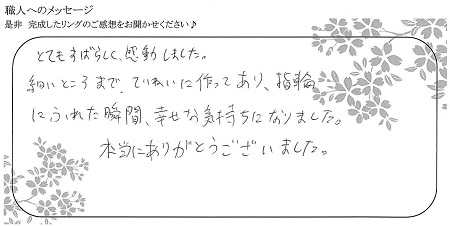 職人へのメッセージ
是非 完成したリングのご感想をお聞かせください♪
とてもすばらしく、感動しました。
細いところまで、ていねいに作ってあり、指輪
にふれた瞬間、幸せな気持ちになりました。
本当にありがとうございました。